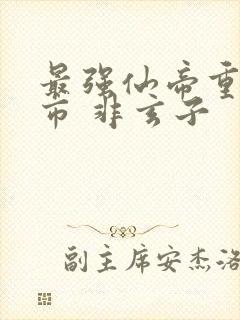 最强仙帝重
市 非玄子
副主席安杰洛